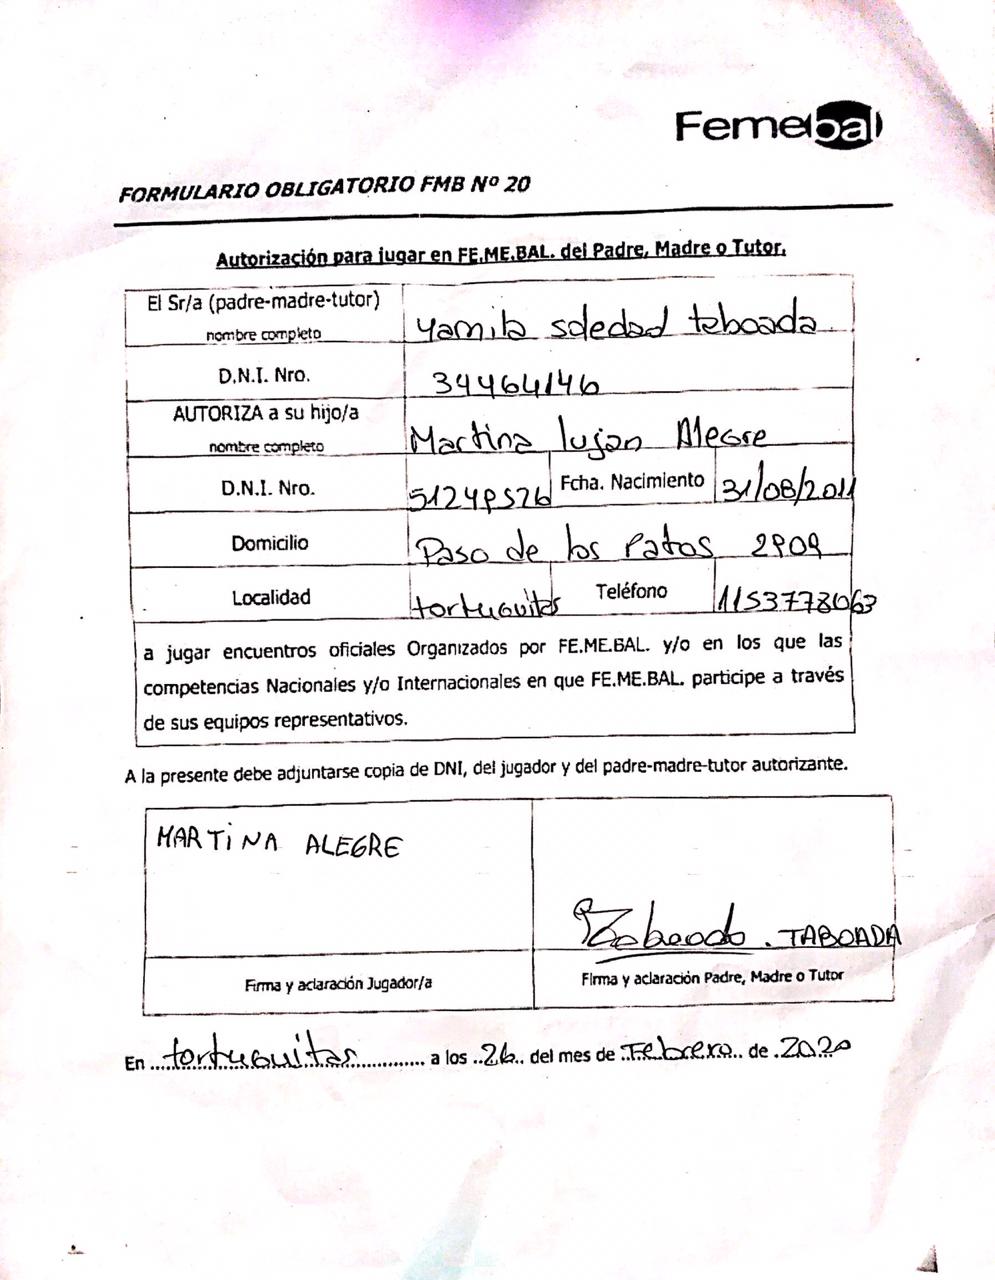 Femebal
FORMULARIO OBLIGATORIO FMB Nº 20
Autorización para jugar en FE.ME.BAL. del Padre, Madre o Tutor.
El Sr/a (padre-madre-tutor)
nombre completo
Yamila soledad taboada
D.N.I. Nro.
34464146
AUTORIZA a su hijo/a
nombre completo
Martina lujan Alegre
D.N.I. Nro.
Fcha. Nacimiento
31/08/2011
Domicilio
Paso de los Patos 2909
Localidad
tortuguitas
Teléfono
1153778063
a jugar encuentros oficiales Organizados por FE.ME.BAL. y/o en los que las
competencias Nacionales y/o Internacionales en que FE.ME.BAL. participe a través
de sus equipos representativos.
A la presente debe adjuntarse copia de DNI, del jugador y del padre-madre-tutor autorizante.
MARTiNA ALEGRE
Taboada. TABOADA
Firma y aclaración Jugador/a
Firma y aclaración Padre, Madre o Tutor
En tortuguitas a los 26 del mes de Febrero de 2020